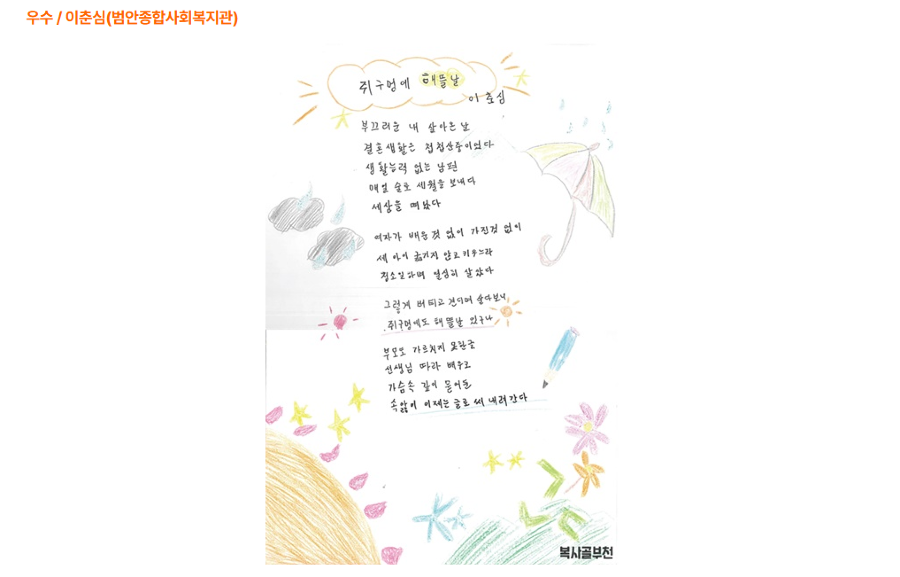 우수 / 이춘심(범안종합사회복지관)
쥐구멍에 해뜰날
이춘심
부끄러운 내 살아온 날
결혼생활은 첩첩산중이었다
생활능력 없는 남편
매일 술로 세월을 보내다
세상을 떠났다
여자가 배운것 없이 가진것 없이
세 아이 굶기지 않고 키우느라
청소일하며 열심히 살았다
그렇게 버티고 견디며 살다보니
쥐구멍에도 해뜰날 있구나
부모도 가르쳐지 못한글
선생님 따라 배우고
가슴속 깊이 묻어둔
속앓이 이제는 글로 써 내려간다
복사골부천